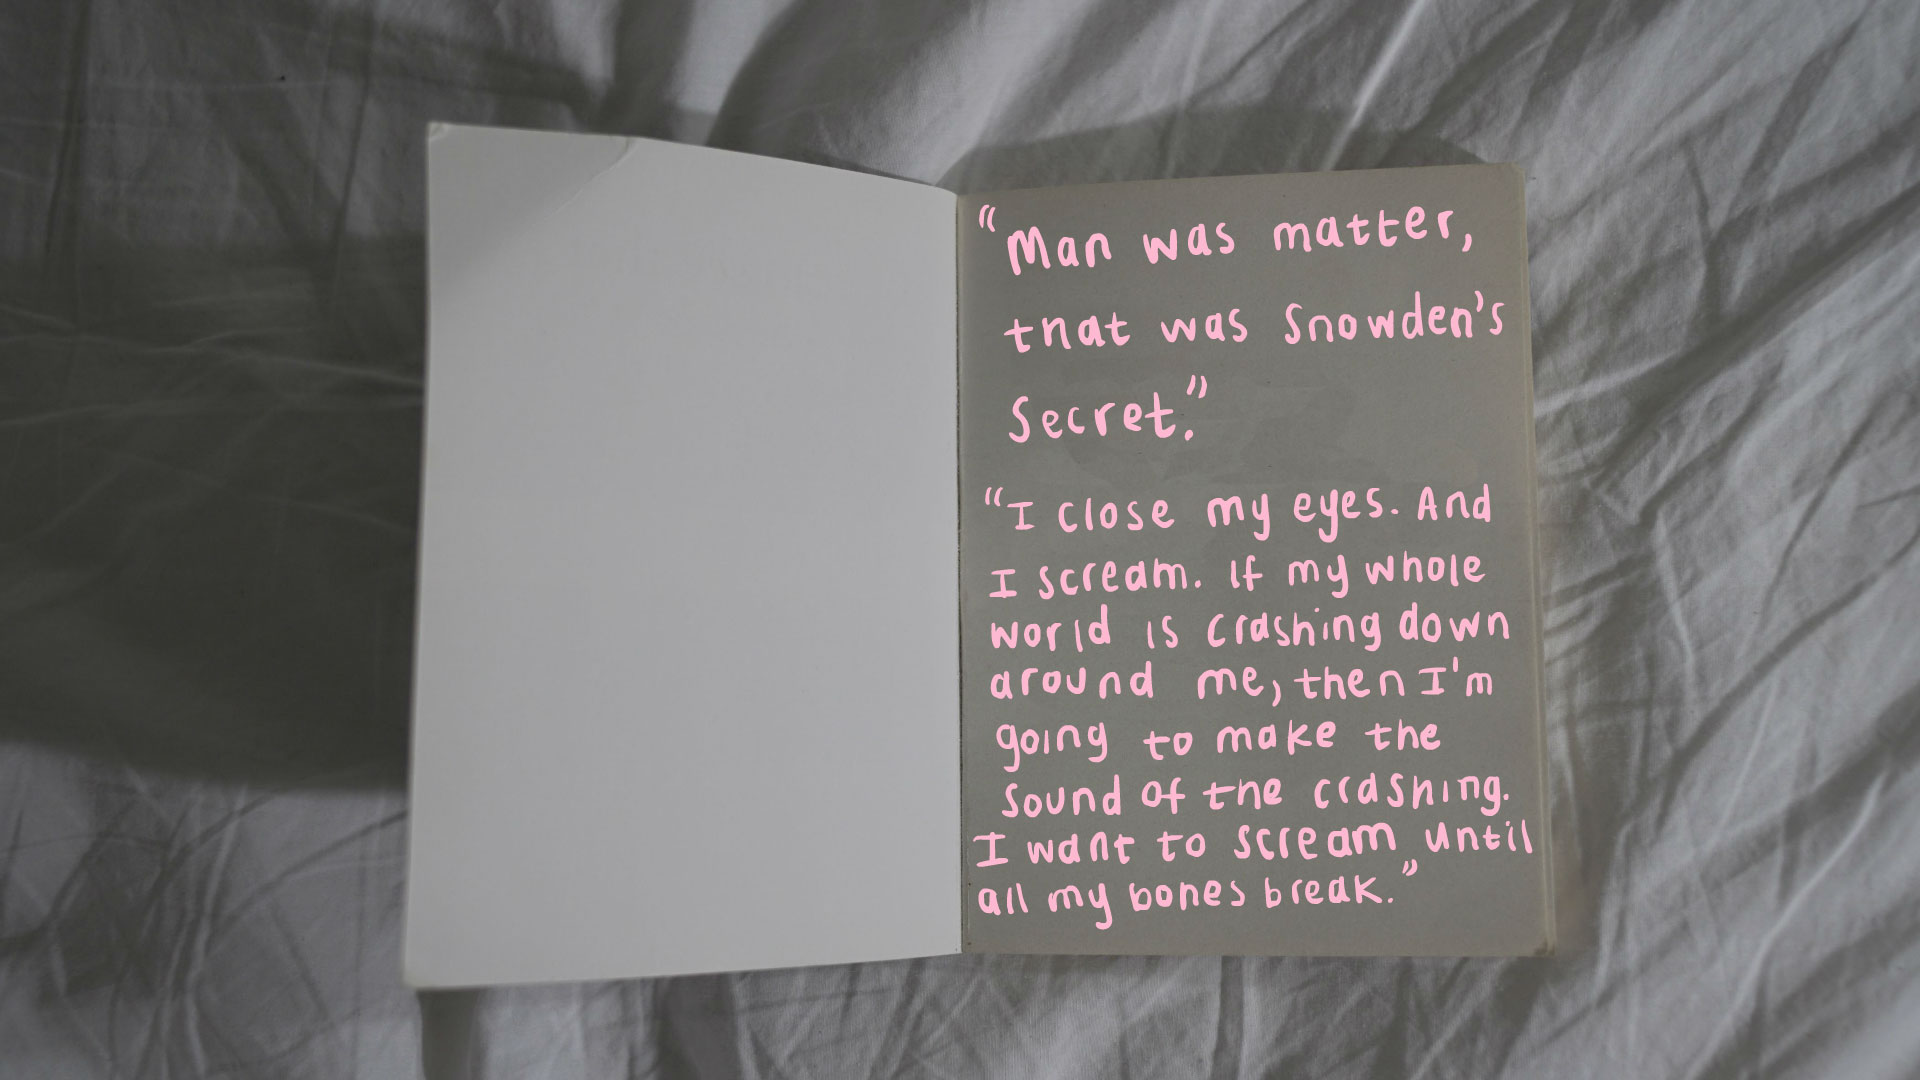 “Man was matter,
that was Snowden's
Secret.”
“I close my eyes. And
I scream. If my whole
world is crashing down
around me, then I'm
going to make the
sound of the crashing.
I want to scream until
all my bones break.”